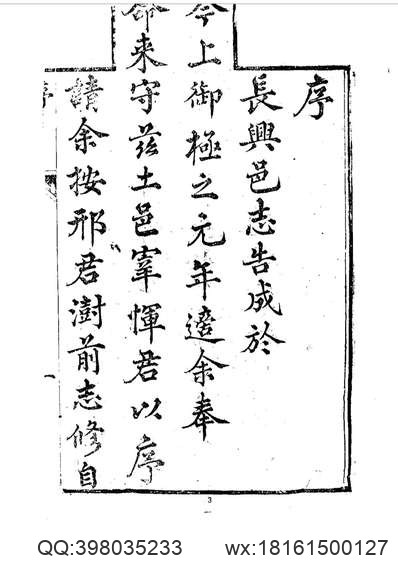 序
長興邑志告成於
今上御極之元年適余奉
命来守茲土邑宰惲君以序
請余按邢君澍前志修自
序
3
QQ:398035233 wx:18161500127